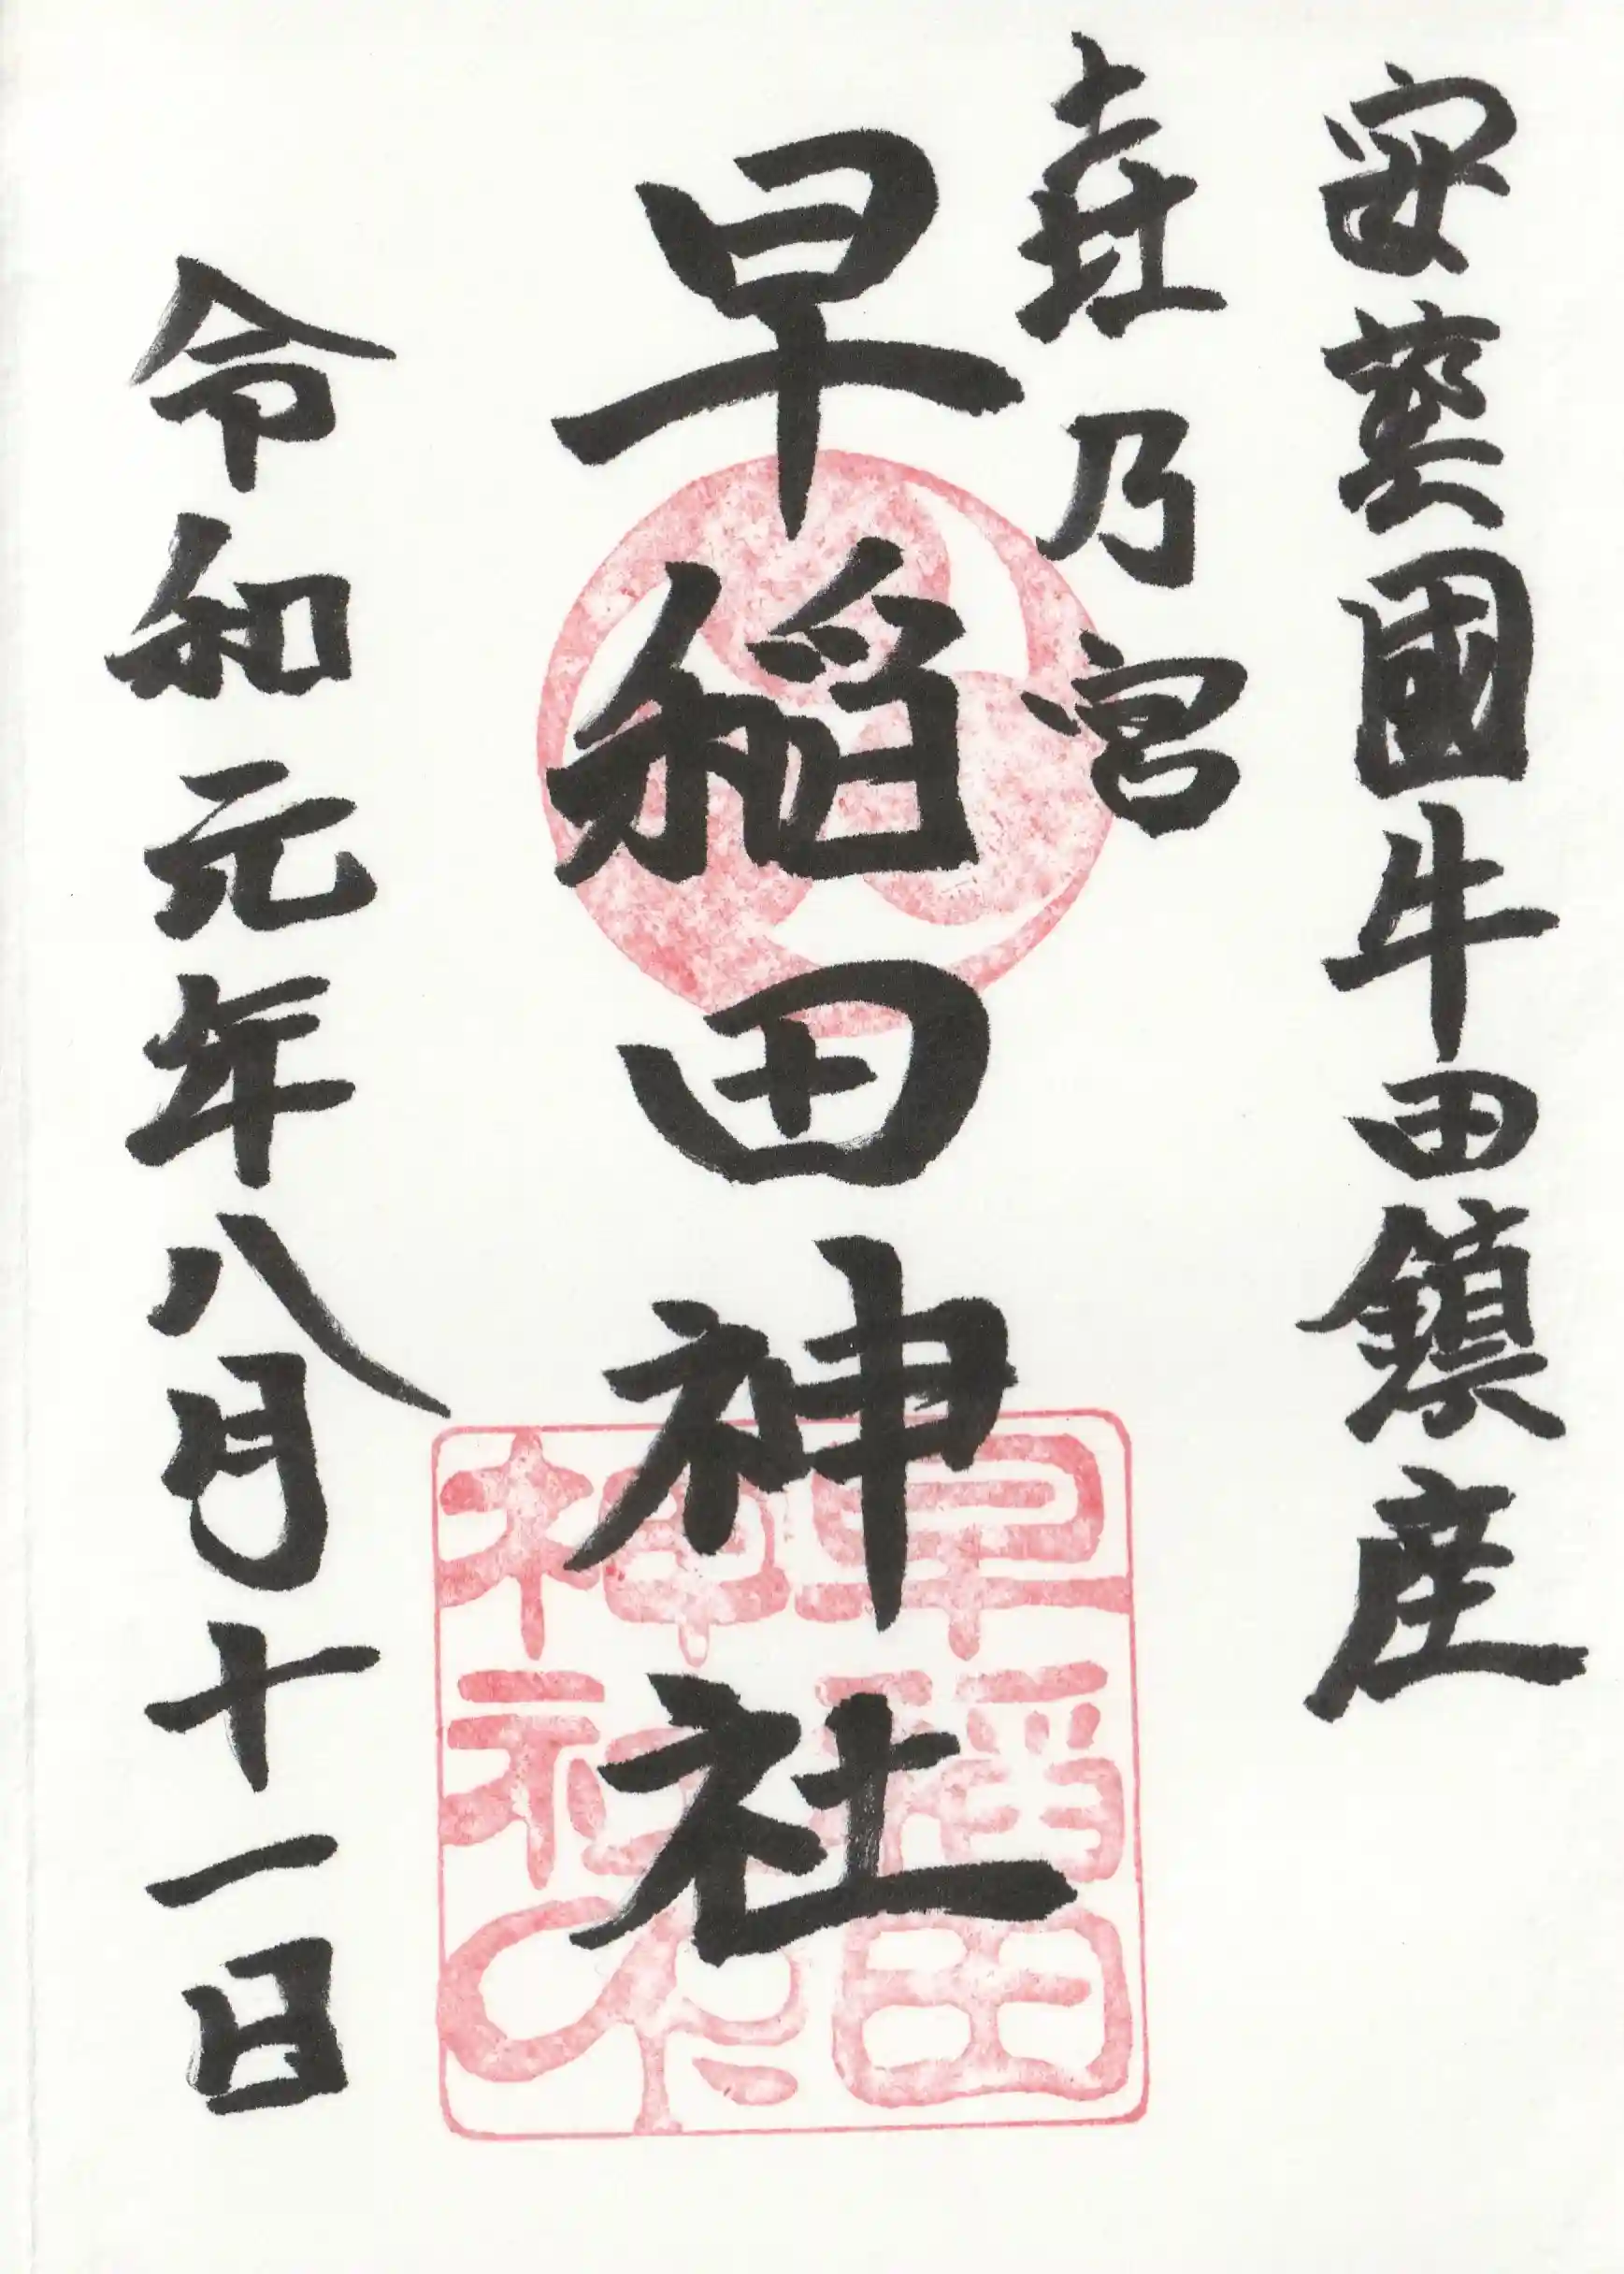 安藝國牛田鎮産
乃宮
早稲田神社
令和元年八月十一日
早稲田
神社